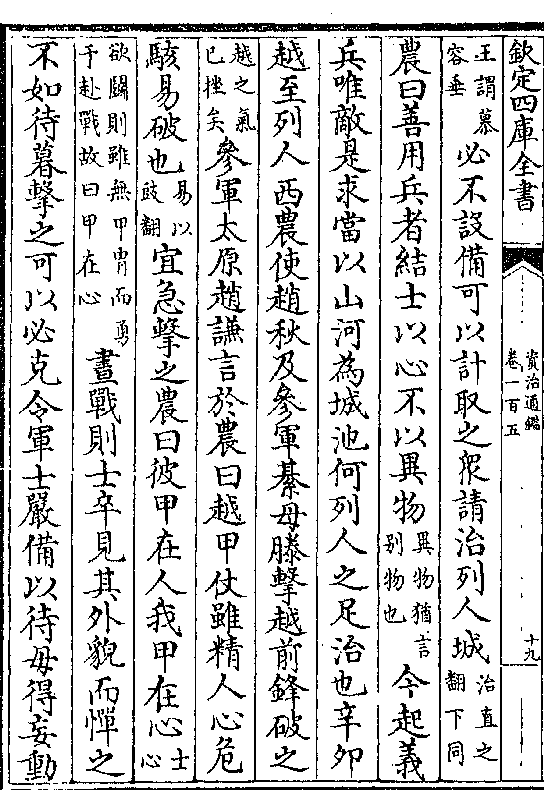 欽定四庫全書
資治通鑑
卷一百五
十九
王謂慕容垂必不設備可以計取之衆請治列人城治直之翻下同
農曰善用兵者結士以心不以異物異物猶言别物也今起義
兵唯敵是求當以山河為城池何列人之足治也辛夘
越至列人西農使趙秋及參軍綦母滕擊越前鋒破之
越之氣已挫矣參軍太原趙謙言於農曰越甲仗雖精人心危
駭易破也易以豉翻宜急擊之農曰彼甲在人我甲在心士心
欲鬬則雖無甲胄而勇于赴戰故曰甲在心晝戰則士卒見其外貌而憚之
不如待暮擊之可以必克令軍士嚴備以待毋得妄動